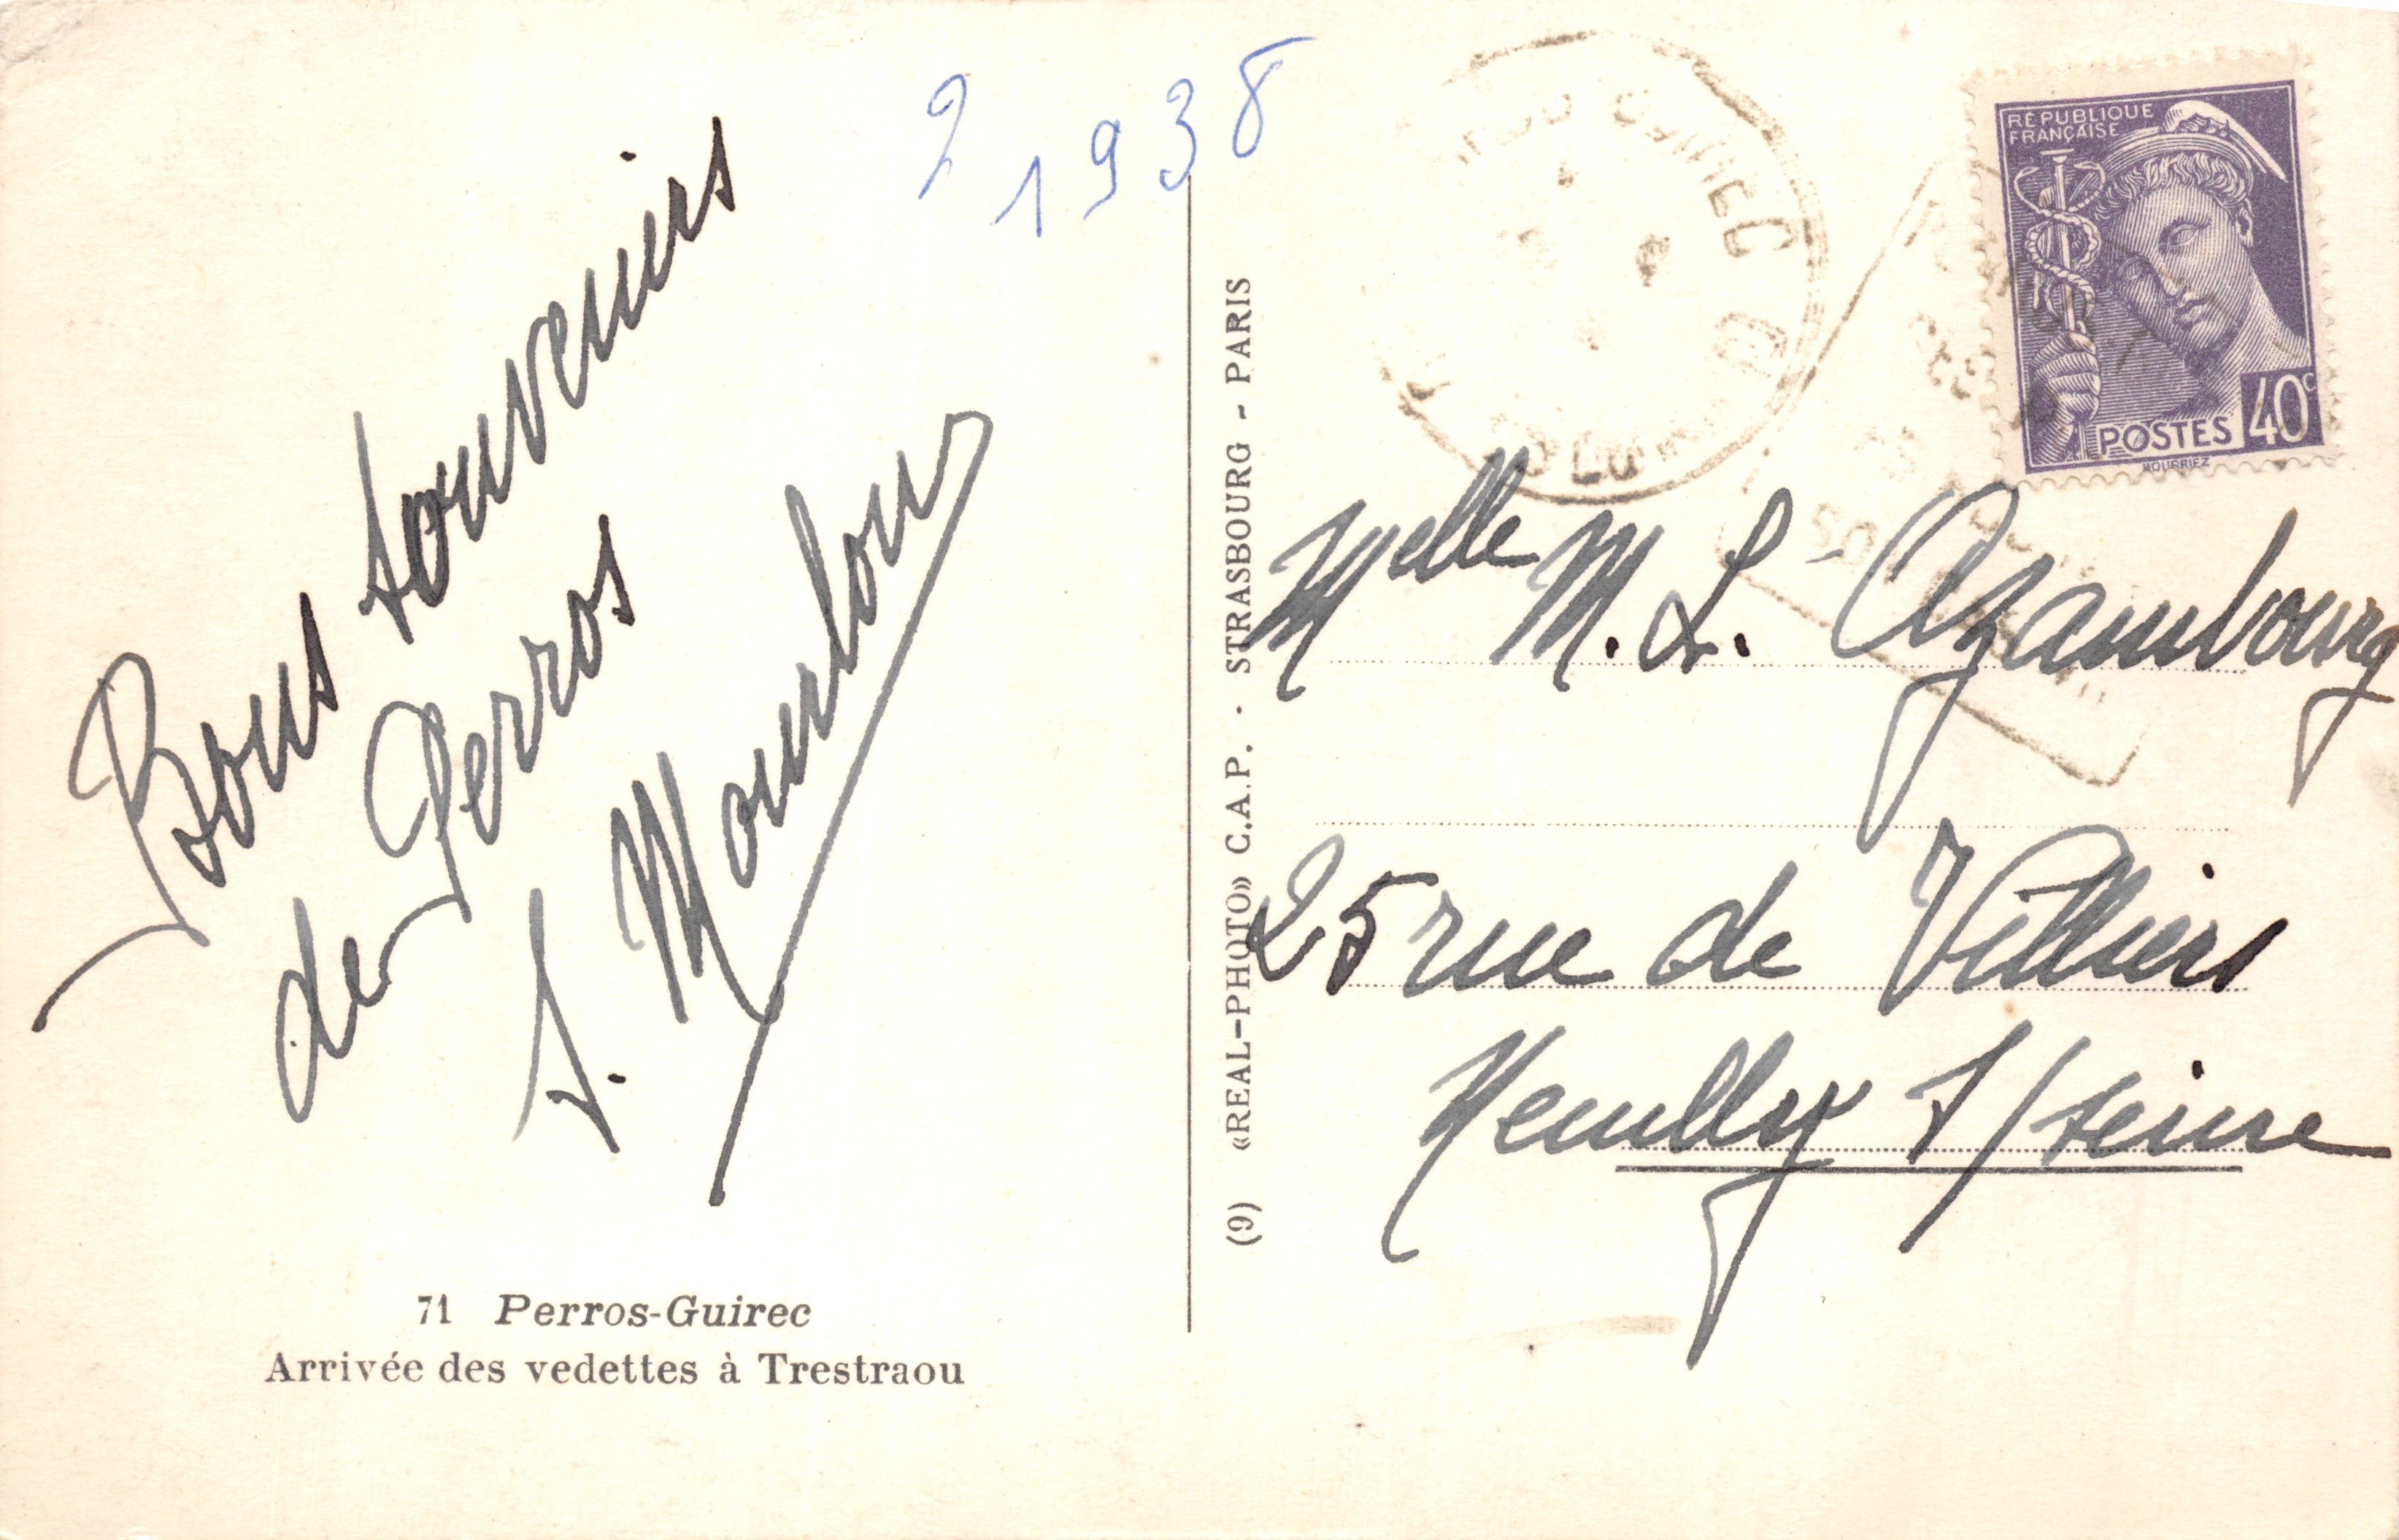 ? 1938
Bons souvenirs
de Perros
S. Mourlou
71 Perros-Guirec
Arrivée des vedettes à Trestraou
(9) «REAL-PHOTO» C.A.P. · STRASBOURG - PARIS
GUIREC
RÉPUBLIQUE
FRANÇAISE
POSTES 40c
MOURRIEZ
Melle M. L. Azambourg
25 rue de Villiers
Neuilly s/seine